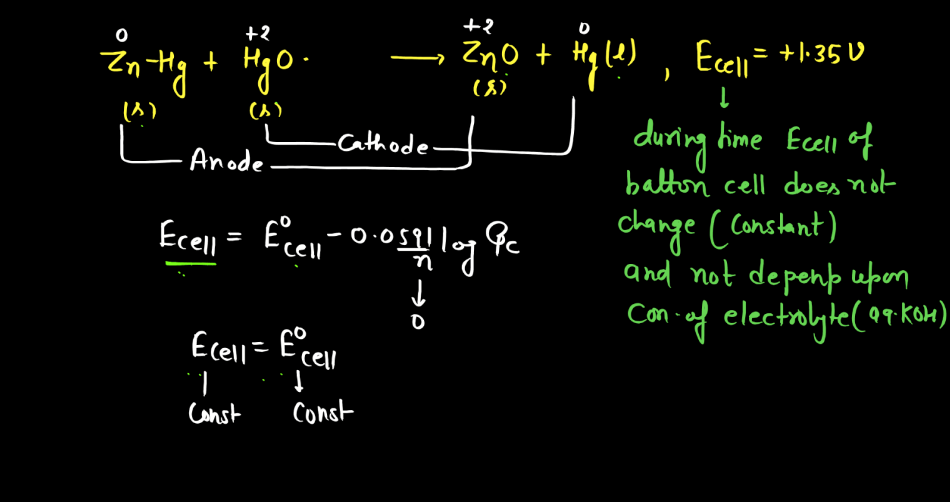 0 +2 +2 0
Zn-Hg + HgO. → ZnO + Hg(l), Ecell = +1.35V
(s) (s) (s)
Cathode
Anode
↓
during time Ecell of
batton cell does not
change (Constant)
and not depenp upon
Con. of electrolyte (aq. KOH)
Ecell = E⁰cell - 0.0591/n log Qc
↓
0
Ecell = E⁰cell
↓
Const Const